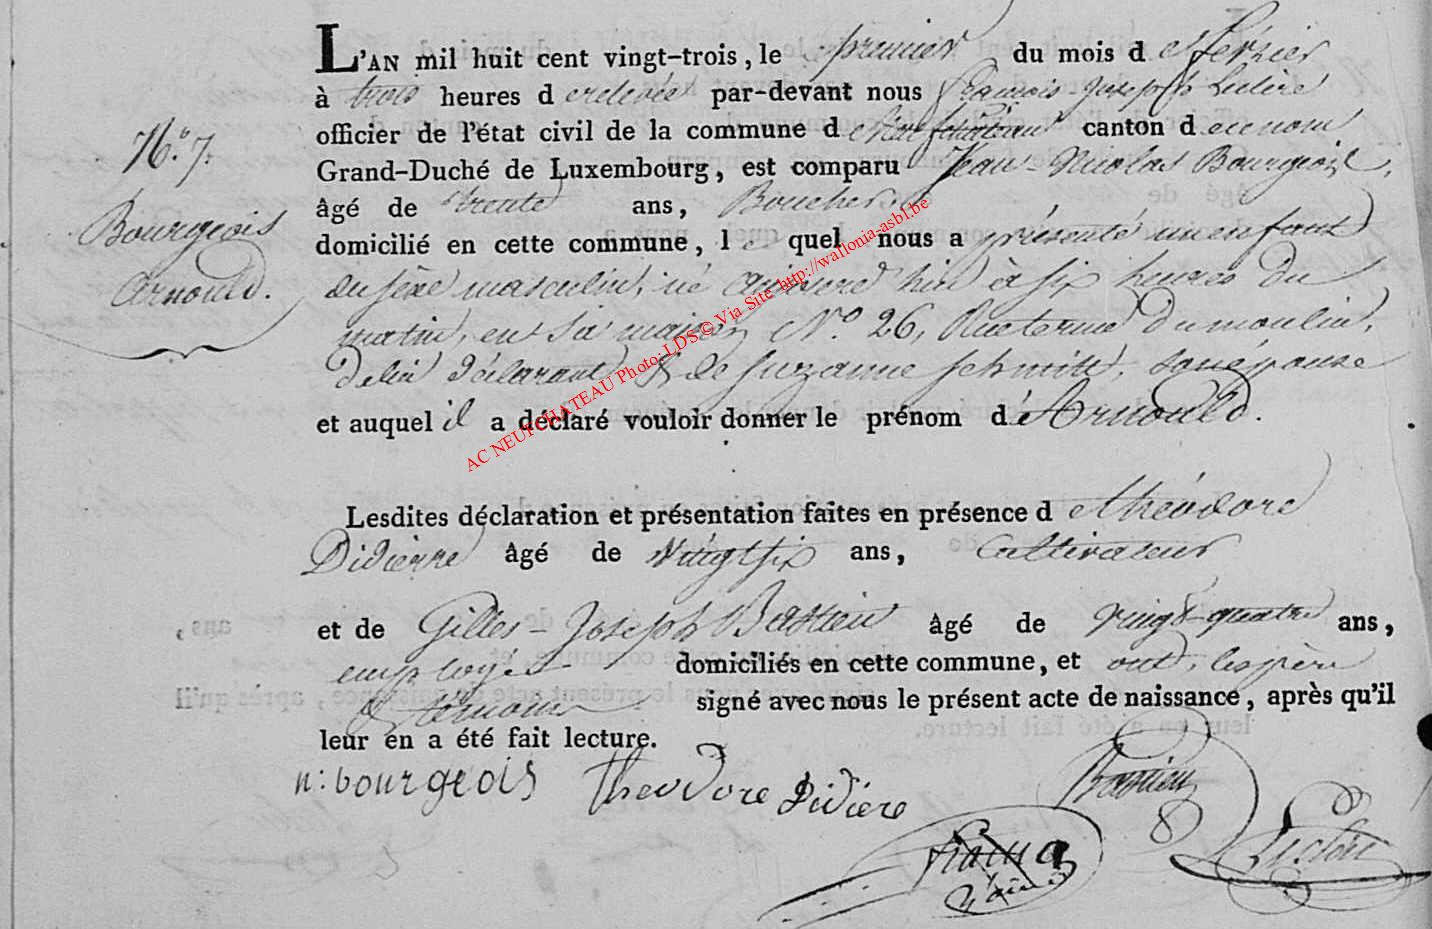 L'AN mil huit cent vingt-trois, le premier du mois de février
à trois heures de relevée par-devant nous François Joseph
officier de l'état civil de la commune de Neufchâteau canton du même nom
Grand-Duché de Luxembourg, est comparu Jean-Nicolas Bourgeois,
âgé de trente ans, Boucher
domicilié en cette commune, lequel nous a présenté un enfant
du sexe masculin, né aujourd'hui à six heures du
matin, en sa maison N.° 26, du moulin,
de lui déclarant & de Suzanne Schmitt, son épouse
et auquel il a déclaré vouloir donner le prénom d'Arnould.
N.° 7.
Bourgeois
Arnould.
Lesdites déclaration et présentation faites en présence de théodore
Didierre âgé de Vingt six ans, Cultivateur
et de Gilles-Joseph Bastien âgé de vingt-quatre ans,
employé domiciliés en cette commune, et ont, les père
& témoins signé avec nous le présent acte de naissance, après qu'il
leur en a été fait lecture.
n: bourgeois theodore Didiere Bastien
AC NEUFCHATEAU Photo-LDS© Via Site http://wallonia-asbl.be